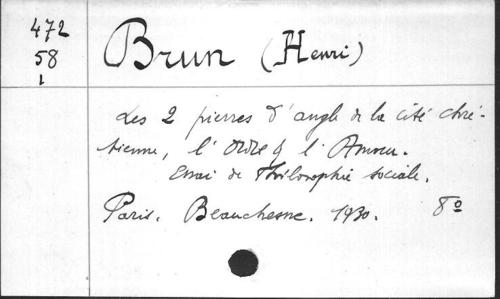 472
58
1
Brun (Henri)
Les 2 pierres d'angle de la cité chré-
tienne, l'Ordre & l'Amour.
Essai de Philosophie sociale.
Paris. Beauchesne. 1930. 8º